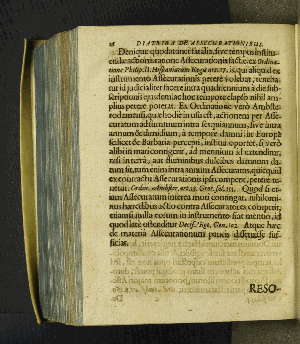 DIATRIBA DE ASSECURATIONIBUS.
Denique quod attinet fatalia, sive tempus instituendæ
actionis ratione Assecurationis factæ: ex Ordinatione
Philippi II. Hispaniarum Regis art. 17. is, qui aliquid ex
instrumento Assecurationis petere volebat, tenebatur
id judicialiter facere intra quadriennium à die subscriptionis
ejusdem, ac hoc tempore elapso nihil amplius
petere poterat. Ex Ordinatione verò Amstelrodamensi,
quæ hodie in usu est, actionem per Assecuratum
adsumi intra sesquiannum, sive intra
annum & dimidium, à tempore damni in Europa
scilicet & Barbaria percepti, institui oportet, si verò
alibi id mari contingent, ad triennium
si in terra, aut fluminibus dulcibus damnum datum
sit, tum enim intra annum Assecuratus, quicquid
ex contractu Assecurationis ipsi competit, petere tenetur.
Quod si etiam
Assecuratum interea mori contingat, nihilominus
hæredibus actio contra Assecuratores competit,
etiamsi nulla eorum in instrumento fiat mentio, id
quod latè ostenditur Decis. Rotæ Gen. 102. Atque hæc
de materia Assecurationum paucis disseruisse sufficiat.
RESO-